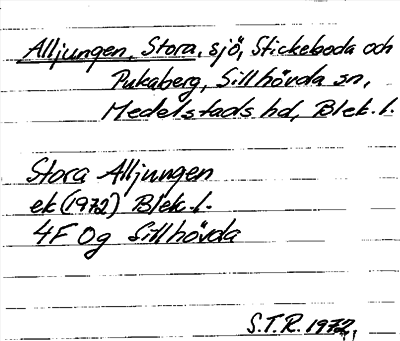 Alljungen, Stora, sjö, Stickeboda och
Pukaberg, Sillhövda sn,
Medelstads hd, Blek. l.
Stora Alljungen
ek (1972) Blek. l.
4F 0g Sillhövda
S.T.R. 1972,